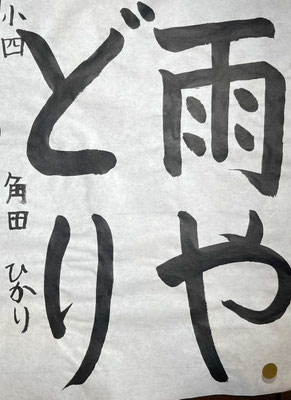 雨や
どり
小四 角田 ひかり